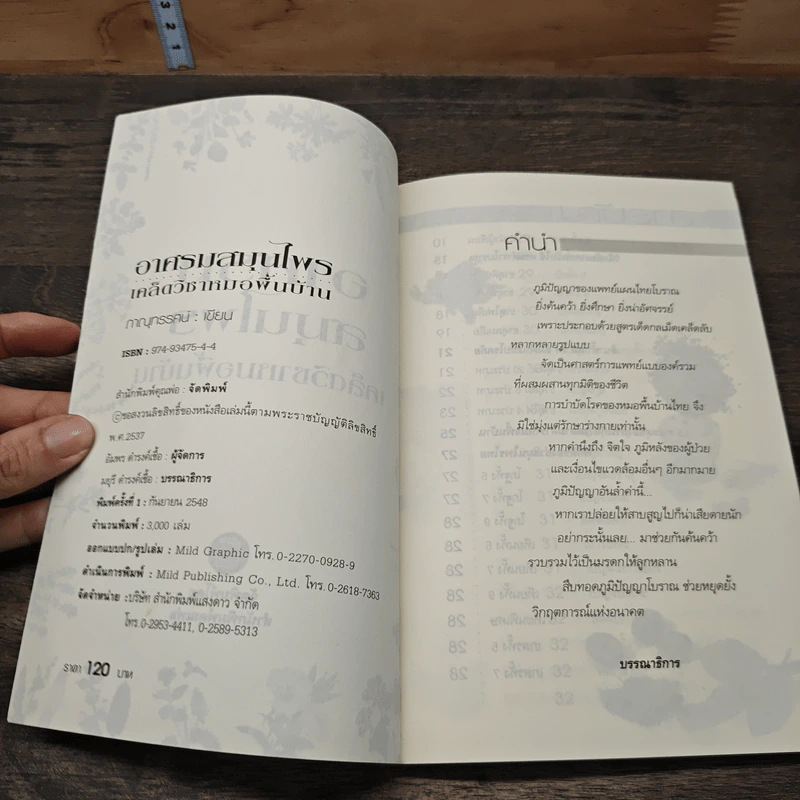 3
2
1
อาศรมสมุนไพร
เคล็ดวิชาหมอพื้นบ้าน
ภาณุทรรศน์ : เขียน
ISBN : 974-93475-4-4
สำนักพิมพ์คุณพ่อ : จัดพิมพ์
©ขอสงวนลิขสิทธิ์ของหนังสือเล่มนี้ตามพระราชบัญญัติลิขสิทธิ์
พ.ศ.2537
อัมพร ดำรงค์เชื้อ : ผู้จัดการ
มยุรี ดำรงค์เชื้อ : บรรณาธิการ
พิมพ์ครั้งที่ 1 : กันยายน 2548
จำนวนพิมพ์ : 3,000 เล่ม
ออกแบบปก/รูปเล่ม : Mild Graphic โทร. 0-2270-0928-9
ดำเนินการพิมพ์ : Mild Publishing Co., Ltd. โทร. 0-2618-7363
จัดจำหน่าย : บริษัท สำนักพิมพ์แสงดาว จำกัด
โทร. 0-2953-4411, 0-2589-5313
ราคา 120 บาท
คำนำ
ภูมิปัญญาของแพทย์แผนไทยโบราณ
ยิ่งค้นคว้า ยิ่งศึกษา ยิ่งน่าอัศจรรย์
เพราะประกอบด้วยสูตรเด็ดกลเม็ดเคล็ดลับ
หลากหลายรูปแบบ
จัดเป็นศาสตร์การแพทย์แบบองค์รวม
ที่ผสมผสานทุกมิติของชีวิต
การบำบัดโรคของหมอพื้นบ้านไทย จึง
มิใช่มุ่งแต่รักษาร่างกายเท่านั้น
หากคำนึงถึง จิตใจ ภูมิหลังของผู้ป่วย
และเงื่อนไขแวดล้อมอื่นๆ อีกมากมาย
ภูมิปัญญาอันล้ำค่านี้...
หากเราปล่อยให้สาบสูญไปก็น่าเสียดายนัก
อย่ากระนั้นเลย... มาช่วยกันค้นคว้า
รวบรวมไว้เป็นมรดกให้ลูกหลาน
สืบทอดภูมิปัญญาโบราณ ช่วยหยุดยั้ง
วิกฤตการณ์แห่งอนาคต
บรรณาธิการ